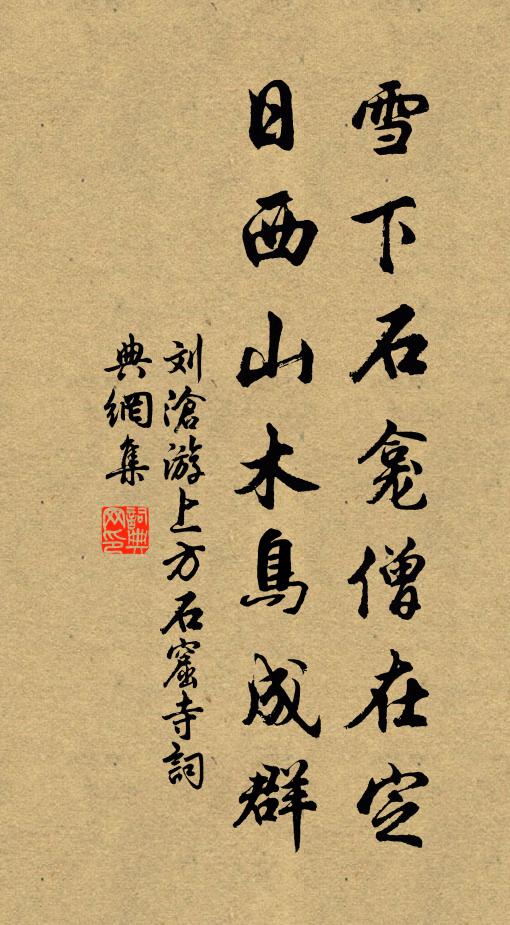 雪下石龕僧在定
日西山木鳥成群
刘滄游上方石窟寺詞
典網集
詞典
网印